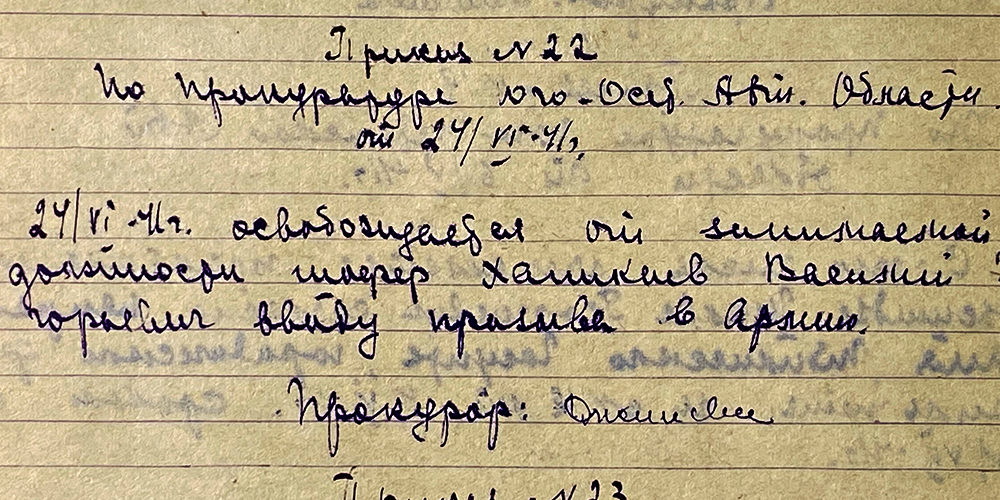 Приказ N 22
По Прокуратуре Юго-Осет. Авт. Области
от 24/VI-41г.
24/VI-41г. освобождается от занимаемой
должности шофер Ханикаев Василий
горьевич ввиду призыва в Армию.
Прокурор:
Приказ N 23